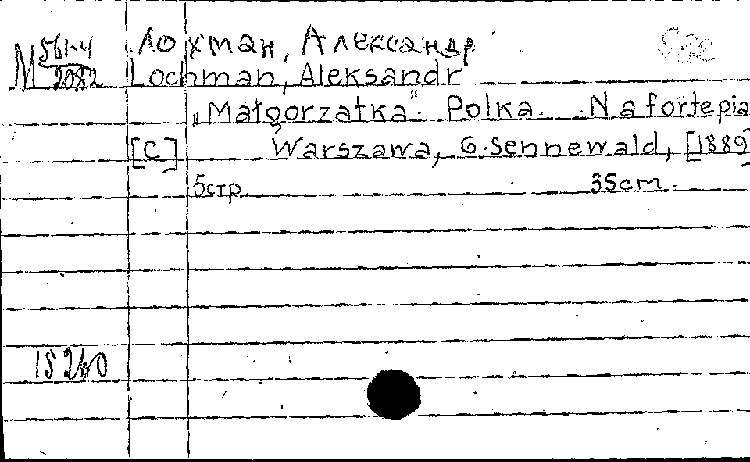 М 561-4
2082
Лохман, Александр
Lochman, Aleksandr
„Małgorzatka". Polka. Na fortepia
[C] Warszawa, G. Sennewald, [1889]
5 стр. 35 cm.
18260